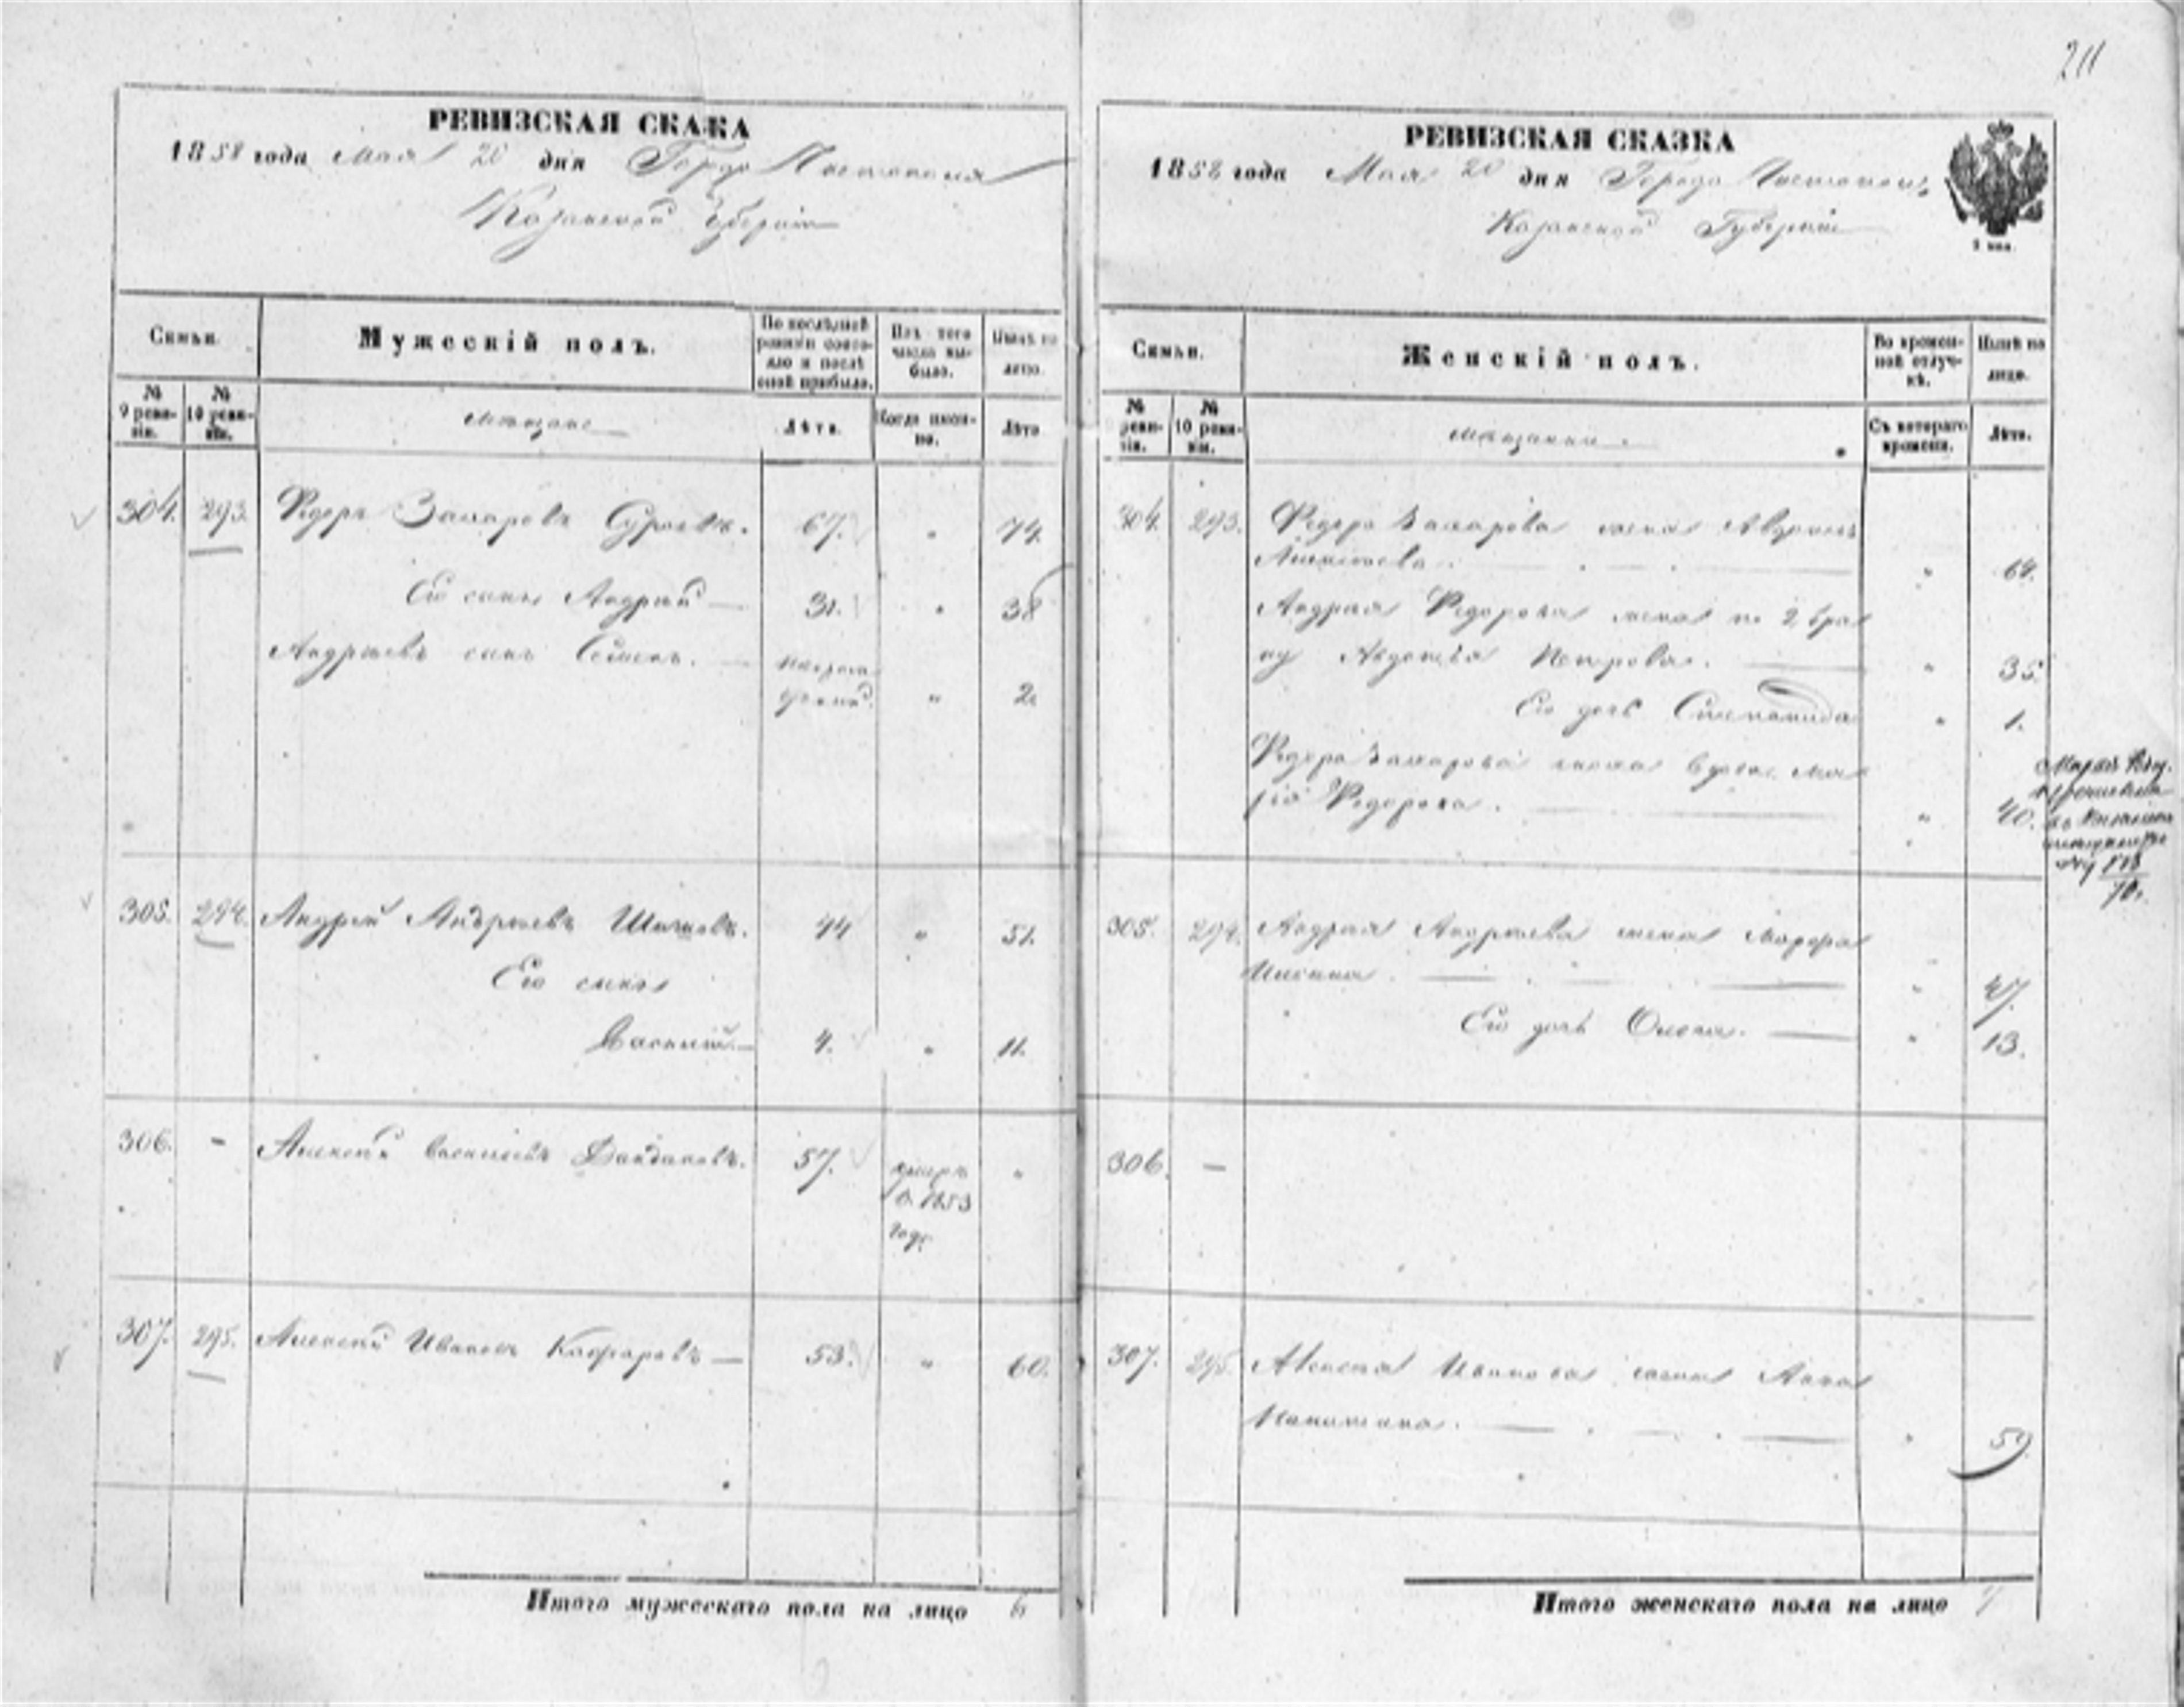 211
РЕВИЗСКАЯ СКАЗКА
1858 года Мая 20 дня Города Чистополя
Казанской Губернии
Семьи.
Мужескій полъ.
По послѣдней ревизіи состояло и послѣ оной прибыло.
Изъ того числа выбыло.
Нынѣ на лицо.
№ 9 ревизіи.
№ 10 ревизіи.
Мѣщане
Лѣта.
Когда именно.
Лѣта
304. 293. Федоръ Захаровъ 67. " 74.
Его сынъ Андрей 31. " 38
Андреевъ сынъ Семенъ. " 2
305. 294. Андрей Андреевъ 44 " 51.
Его сынъ
Василій 4. " 11.
306. - Алексѣй Васильевъ 57. умеръ "
в. 1853
году
307. 295. Алексѣй Ивановъ 53. " 60.
Итого мужескаго пола на лицо 6
РЕВИЗСКАЯ СКАЗКА
1858 года Мая 20 дня Города Чистополя
Казанской Губерніи
Семьи.
Женскій полъ.
Во временной отлучкѣ.
Нынѣ на лицо.
№ ревизіи.
№ 10 ревизіи.
Мѣщанки
Съ котораго времени.
Лѣта.
304. 293. Федора Захарова жена
" 64.
Андрея Федорова жена по 2 бра
ку Авдотья Петрова. " 35.
Его дочь Степанида " 1.
Федора Захарова Ма
рья Федорова. " 40.
305. 294. Андрея Андреева жена
" 47.
Его дочь Олена. " 13.
306. —
307. 295. Алексея Иванова жена Анна
" 59
Итого женскаго пола на лицо 7